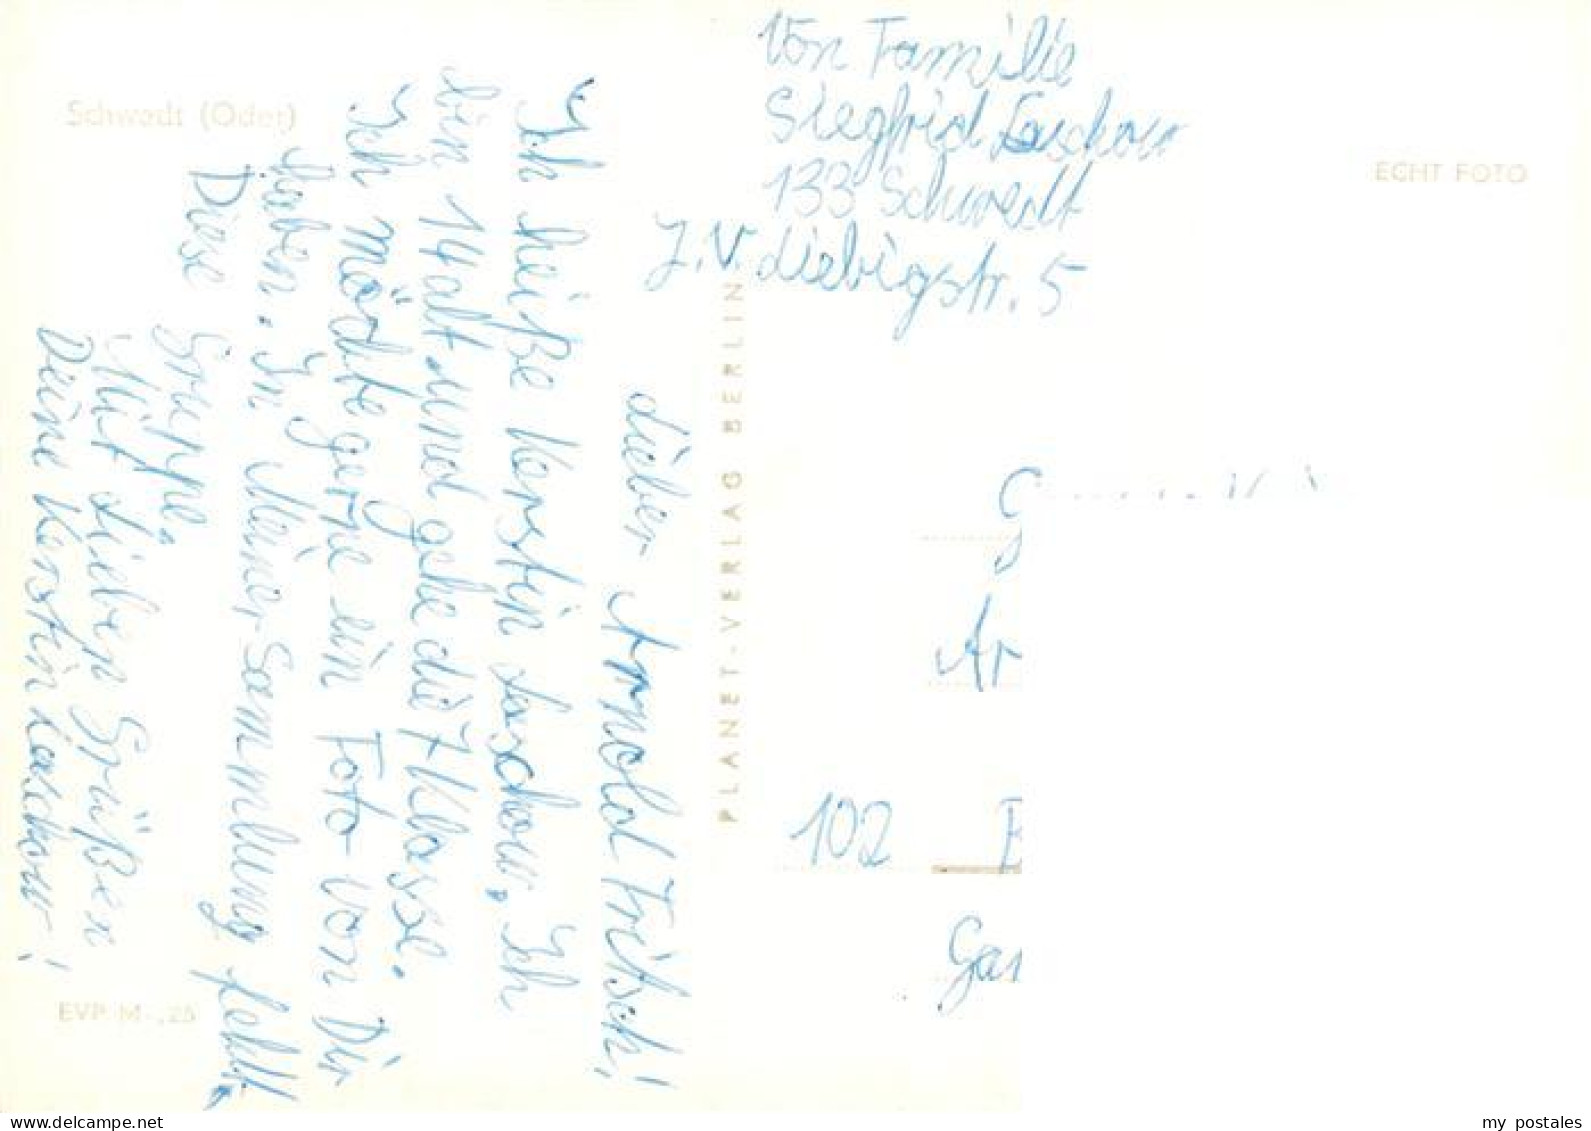 Schwedt (Oder)
ECHT FOTO
Von Familie
Siegfrid Laschow
133 Schwedt
J.V. Liebigstr. 5
Lieber Arnold Fritsch!
Ich heiße Kerstin Laschow, Ich
bin 14 alt und gehe die 7 Klasse.
Ich möchte gerne ein Foto von Dir
haben. In Meiner Sammlung fehlt
Diese Gruppe.
Mit Lieben Grüßen
Deine Kerstin Laschow!
PLANET-VERLAG BERLIN
G
Ar
102 B
Gar
EVP M -,25
my postales